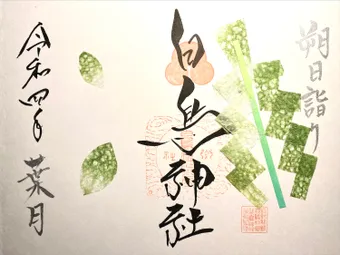 朔日詣り
白鳥神社
令和四年
葉月